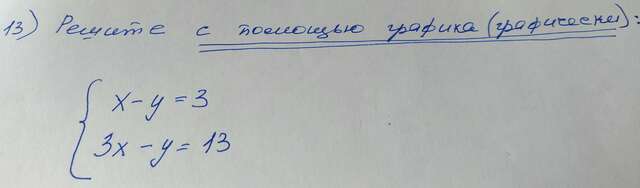 13) Решите с помощью графика (графически):
x - y = 3
3x - y = 13